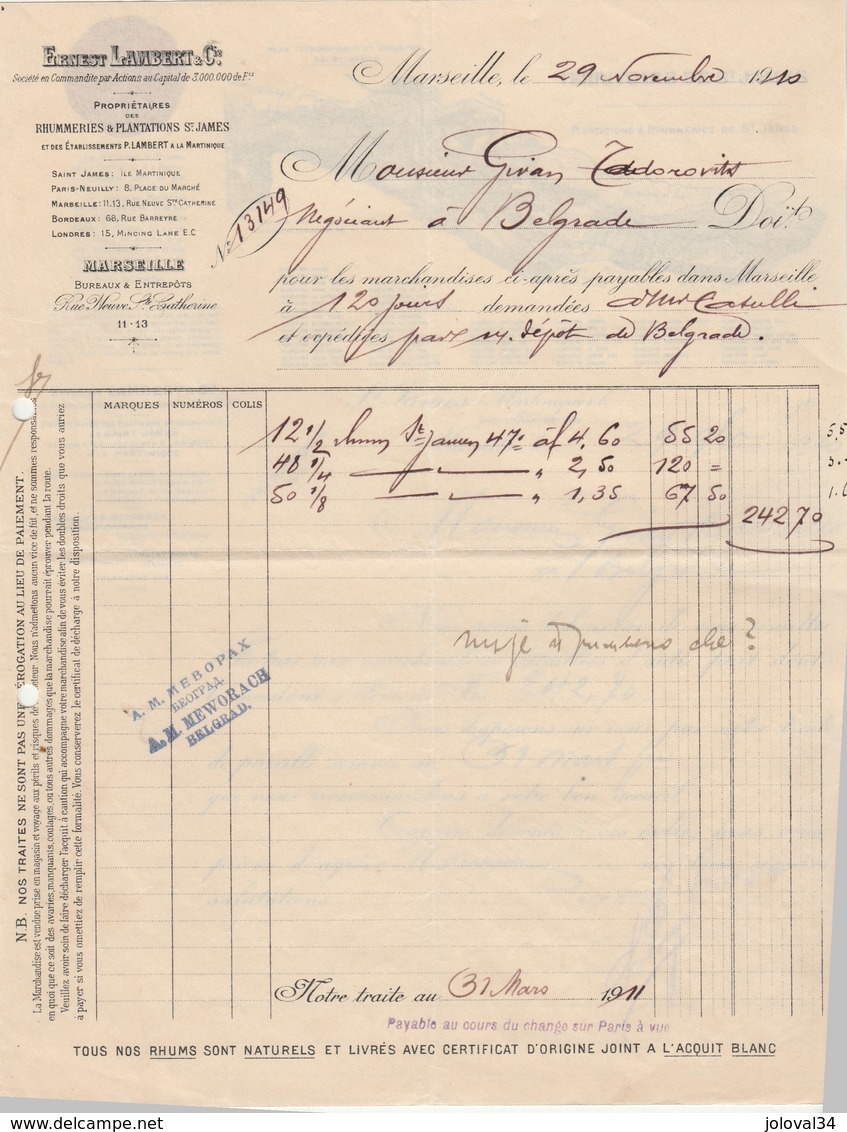 ERNEST LAMBERT & Cie
Société en Commandite par Actions au Capital de 3.000.000 de Frs
PROPRIÉTAIRES
DES
RHUMMERIES & PLANTATIONS St JAMES
ET DES ÉTABLISSEMENTS P. LAMBERT A LA MARTINIQUE
SAINT JAMES : ILE MARTINIQUE
PARIS-NEUILLY : 8, PLACE DU MARCHÉ
MARSEILLE : 11.13, RUE NEUVE Ste CATHERINE
BORDEAUX : 68, RUE BARREYRE
LONDRES : 15, MINCING LANE E.C
MARSEILLE
BUREAUX & ENTREPÔTS
Rue Neuve Ste Catherine
11-13
Marseille, le 29 Novembre 1910
PLANTATIONS & RHUMMERIES DE St JAMES
Monsieur Givan Todorovits
No 13149
Négociant à Belgrade Doit
pour les marchandises ci-après payables dans Marseille
à 120 jours demandées
et expédiées par n. dépôt de Belgrade.
MARQUES NUMÉROS COLIS
12 1/2 rhum St James 47° à f 4,60 55 20
48 1/4 — — " 2,50 120 =
50 1/8 — — " 1,35 67 50
242 70
?
А. М. МЕВОРАХ
БЕОГРАД.
A. M. MEWORACH
BELGRAD.
Notre traite au 31 Mars 1911
Payable au cours du change sur Paris à vue
TOUS NOS RHUMS SONT NATURELS ET LIVRÉS AVEC CERTIFICAT D'ORIGINE JOINT A L'ACQUIT BLANC
N.B. NOS TRAITES NE SONT PAS UNE DÉROGATION AU LIEU DE PAIEMENT.
La Marchandise est vendue prise en magasin et voyage aux périls et risques de l'acheteur. Nous n'admettons aucun vice de fût, et ne sommes responsables
en quoi que ce soit des avaries, manquants, coulages, ou tous autres dommages que la marchandise pourrait éprouver pendant la route.
Veuillez avoir soin de faire décharger l'acquit à caution qui accompagne votre marchandise afin de vous éviter les doubles droits que vous auriez
à payer si vous omettiez de remplir cette formalité. Vous conserverez le certificat de décharge à notre disposition.
www.delcampe.net
joloval34